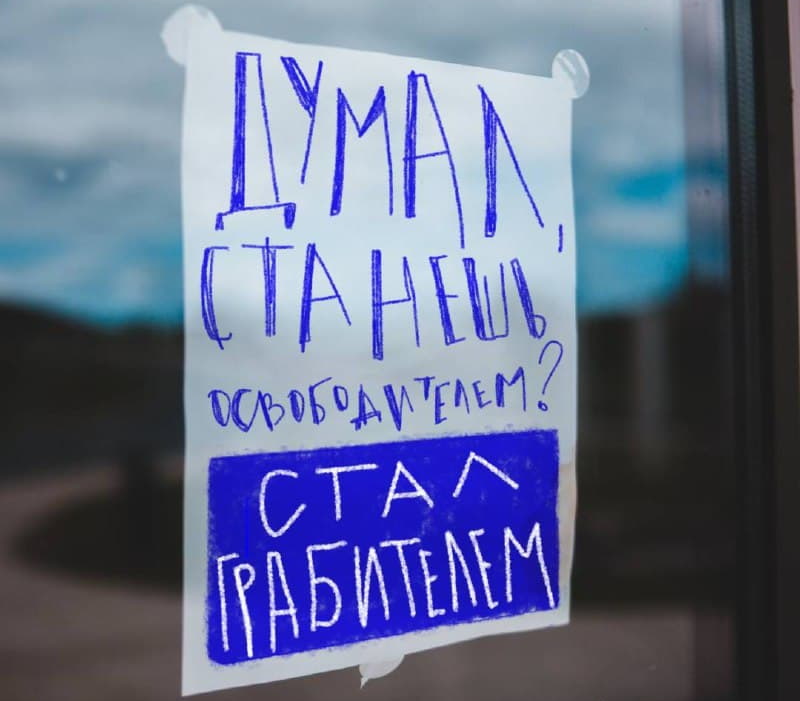 ДУМАЛ,
СТАНЕШЬ
ОСВОБОДИТЕЛЕМ?
СТАЛ
ГРАБИТЕЛЕМ